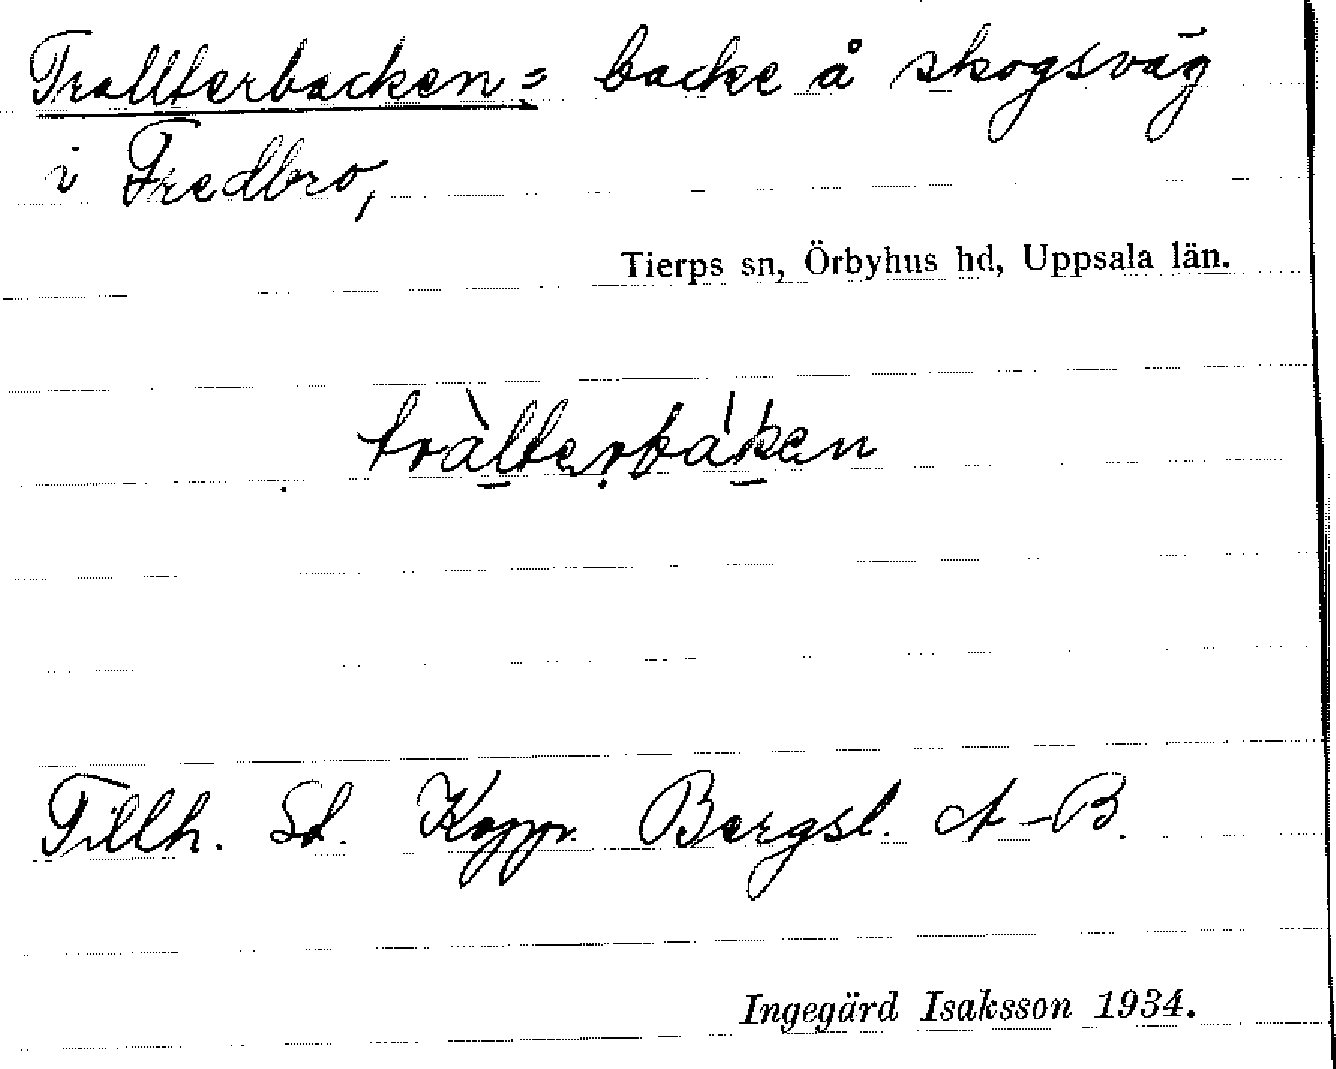 Trallterbacken = backe å skogsväg
i Fredbro,
Tierps sn, Örbyhus hd, Uppsala län.
tràlterba̍ken
Tillh. St. Koppr. Bergsl. A-B.
Ingegärd Isaksson 1934.